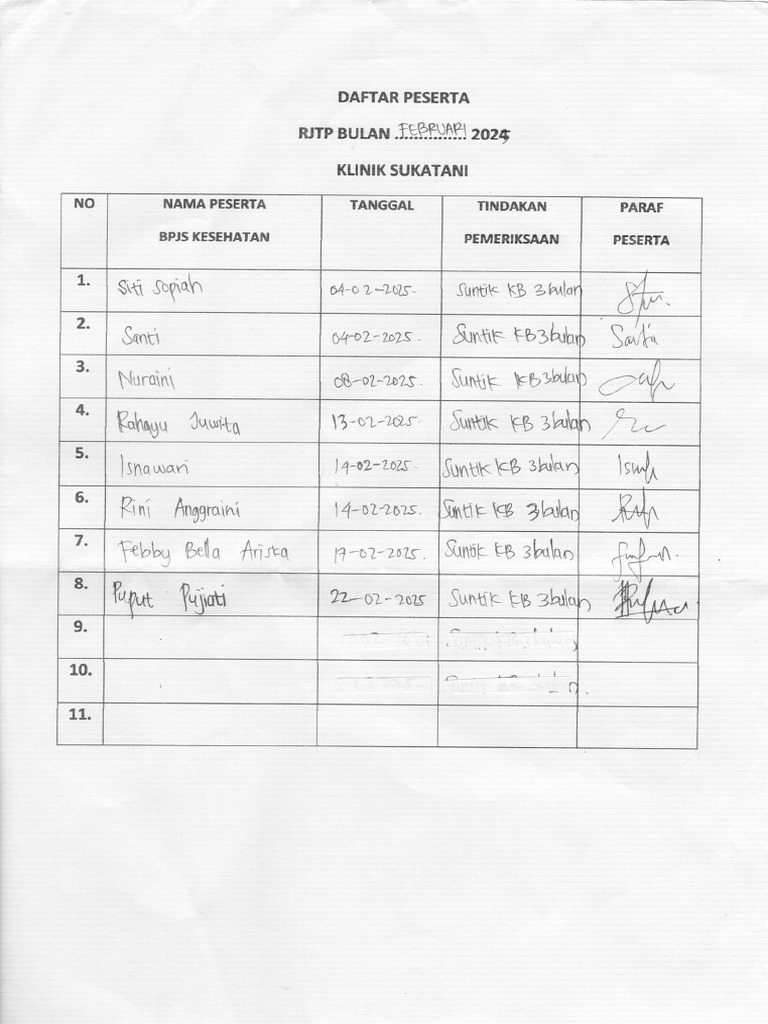 DAFTAR PESERTA
RJTP BULAN FEBRUARI 2025
KLINIK SUKATANI
NO NAMA PESERTA BPJS KESEHATAN TANGGAL TINDAKAN PEMERIKSAAN PARAF PESERTA
1. Siti Sopiah 04-02-2025. Suntik KB 3 bulan
2. Santi 04-02-2025. Suntik KB 3 bulan Santi
3. Nuraini 08-02-2025. Suntik KB 3 bulan
4. Rahayu Juwita 13-02-2025. Suntik KB 3 bulan
5. Isnawari 14-02-2025. Suntik KB 3 bulan
6. Rini Anggraini 14-02-2025. Suntik KB 3 bulan
7. Febby Bella Ariska 17-02-2025. Suntik KB 3 bulan
8. Puput Pujiati 22-02-2025 Suntik KB 3 bulan
9.
10.
11.